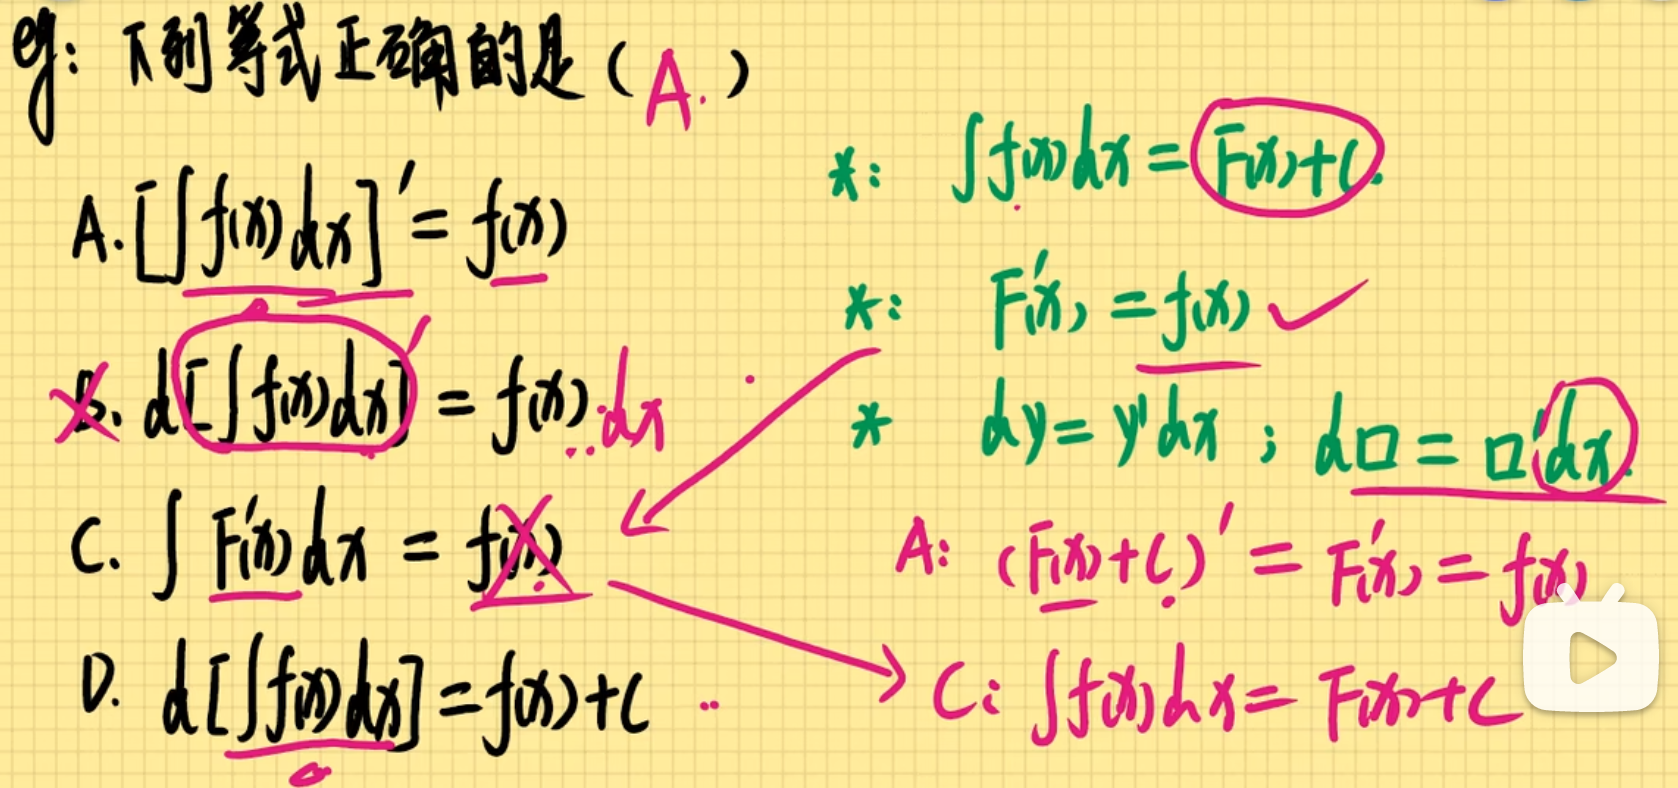 eg: 下列等式正确的是 ( A. )
A. [∫f(x)dx]' = f(x)
B. d[∫f(x)dx]' = f(x).dx
C. ∫F'(x)dx = f(x)
D. d[∫f(x)dx] = f(x)+C
*: ∫f(x)dx = F(x)+C.
*: F'(x) = f(x) ✓
* dy = y'dx ; d□ = □'dx.
A: (F(x)+C)' = F'(x) = f(x)
C: ∫f(x)dx = F(x)+C